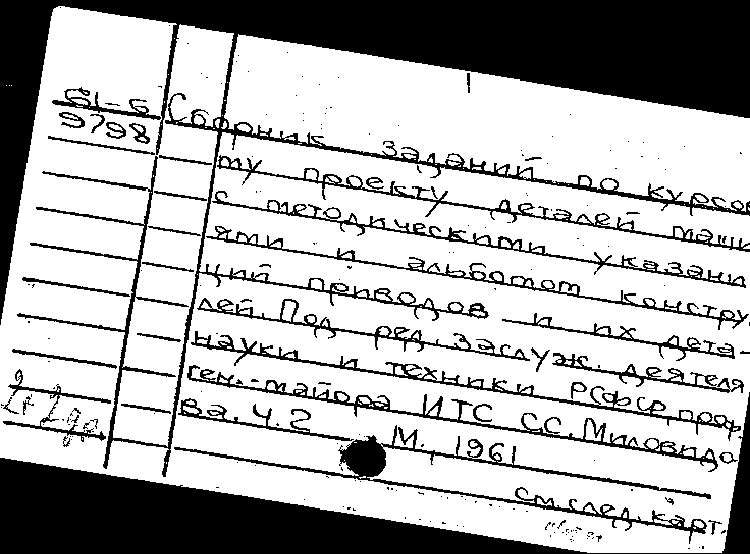 Б1-6
9798
Сборник заданий по курсов
му проекту деталей маши
с методическими указани
ями и альбомом констру
ций приводов и их дета-
лей. Под ред. Заслуж. деятеля
науки и техники РСФСР, проф.
ген.-майора ИТС С.С. Миловидо
ва. ч.2 М., 1961
см. след. карт.